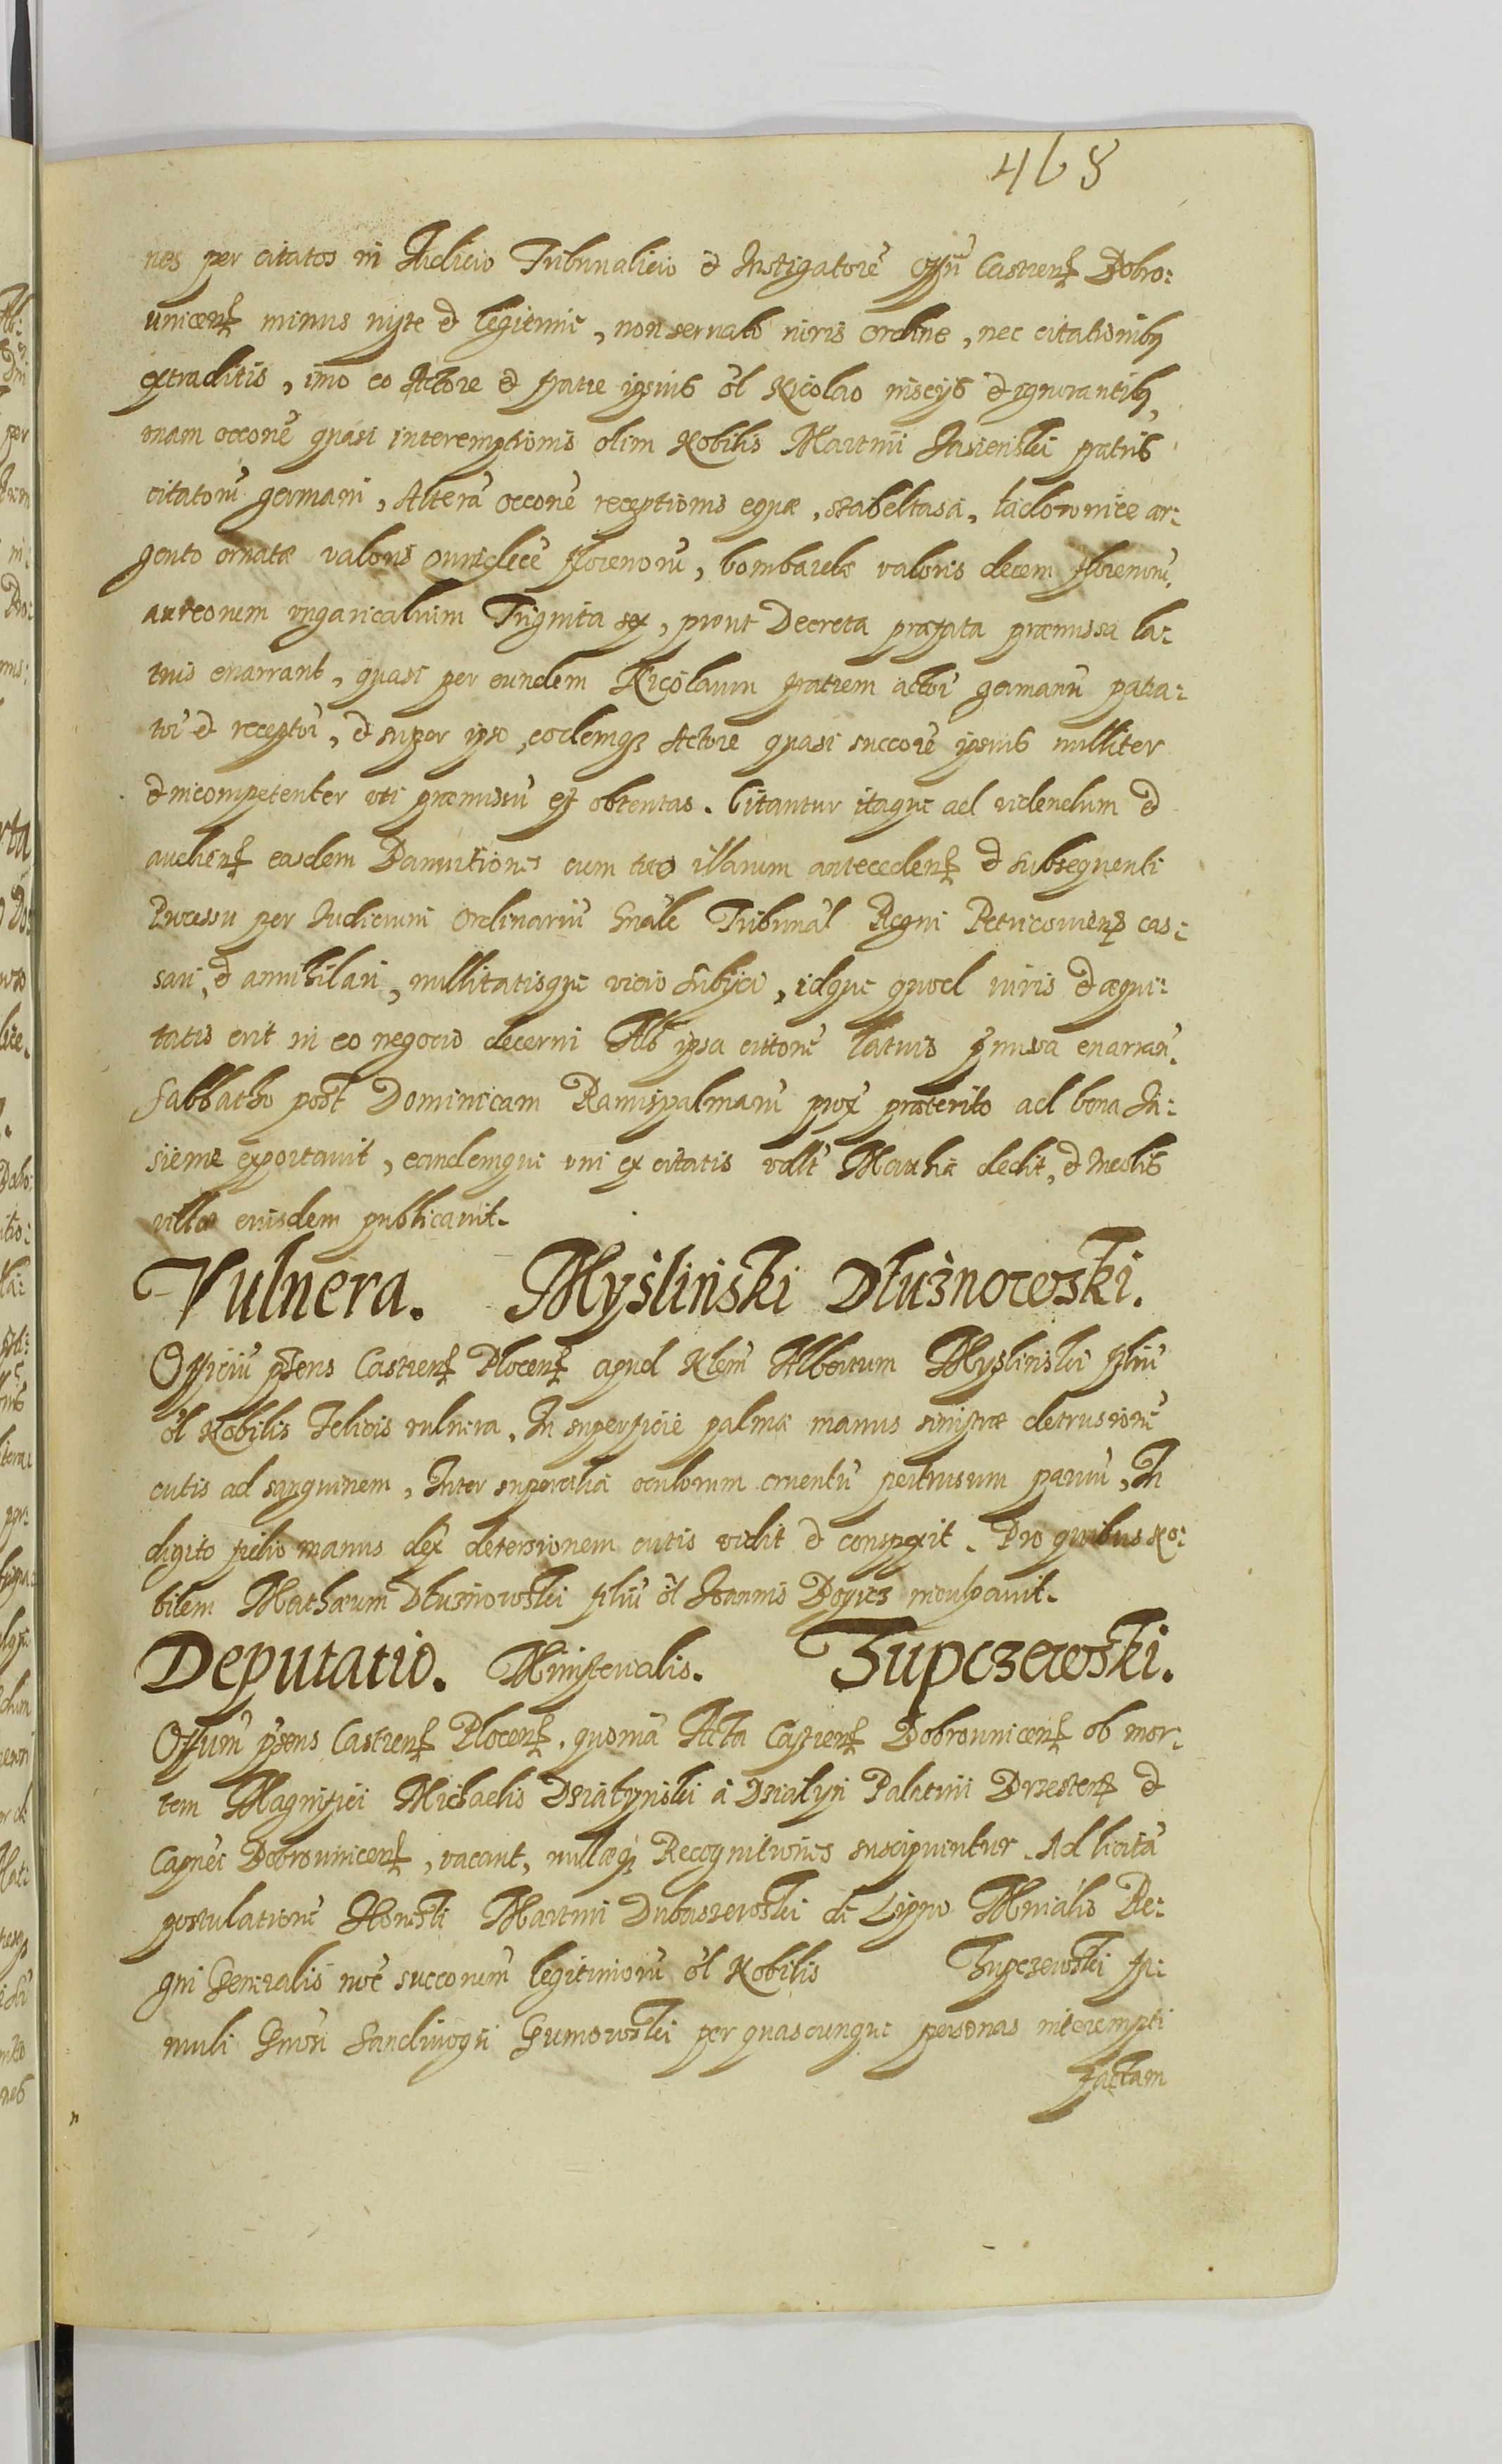 468
nes per citatos in Iudicio Tribunalicio et Instigatorē Offū Castrens Dobro:
unicens minus ryte et legitime, non servato iuris ordine, nec citationibus
extraditis, imo eo Actore et fratre ipsius ol Nicolao inscijs et ignorantibus,
unam occone quasi interemptionis olim Nobilis Martini Jasienski fratris
citatorū germani, Alterā occone receptionis equæ, szabeltasa, ar:
gento ornatæ valoris florenorū, bombardæ valoris decem florenorū,
aureorum ungaricalium Triginta sex, prout Decreta præfata præmissa la:
tius enarrant, quasi per eundem Nicolaum fratrem actoris germanū patra:
et receptorū, et super ipso, eodemq3 Actore quasi succōre ipsius nulliter
et incompetenter uti præmissū est obtentas. Citantur itaque ad videndum et
audiend easdem Banitiones cum toto illarum antecedens et subsequenti
Processu per Iudicium Ordinariū Gnale Tribunal Regni Petricouiens cas:
sari, et annihilari, nullitatisque vicio subijci, idque quod iuris et æqui:
tatis erit in eo negocio decerni Alb ipsa cittone latius pmissa enarran.
Sabbatho post Dominicam Ramispalmarū prox præterito ad bona Ja:
sieme exportavit, eandemque uni ex citatis vdlt Marthæ dedit, et Incolis
villæ eiusdem publicavit.
Vulnera. Myśliński Dłużnowski.
Officiū pñs Castrens Plocens apud Nlem Albertum Myslinski filiū
ol Nobilis Felicis vulnera, In superficie palmæ manus sinistræ detrusionē
cutis ad sanguinem, Inter supercilia oculorum cruentū pertusum parvū, In
digito manus dex detersionem cutis vidit et conspexit. Pro quibus No:
bilem Mathæum Dłuznowski filiū ol Joannis inculpavit.
Deputatio. Ministerialis. Zupczewski.
Offium pñs Castrens Plocens. quoniā Acta Castrens Dobrounicens ob mor:
tem Magnifici Michaelis Dzialynski a Dzialyn Palatini Brzestens et
Capnei Dobrounicens, vacant, nullæq3 Recognitiones suscipiuntur. Ad licitā
postulationē Honesti Martini Dubaszewski de Lipno Mnialis Re:
gni Generalis noē succorum legitimorū ol Nobilis Zupczewski fa:
muli Gnosi Sandivogii Gumowski per quascunque personas interempti
factam